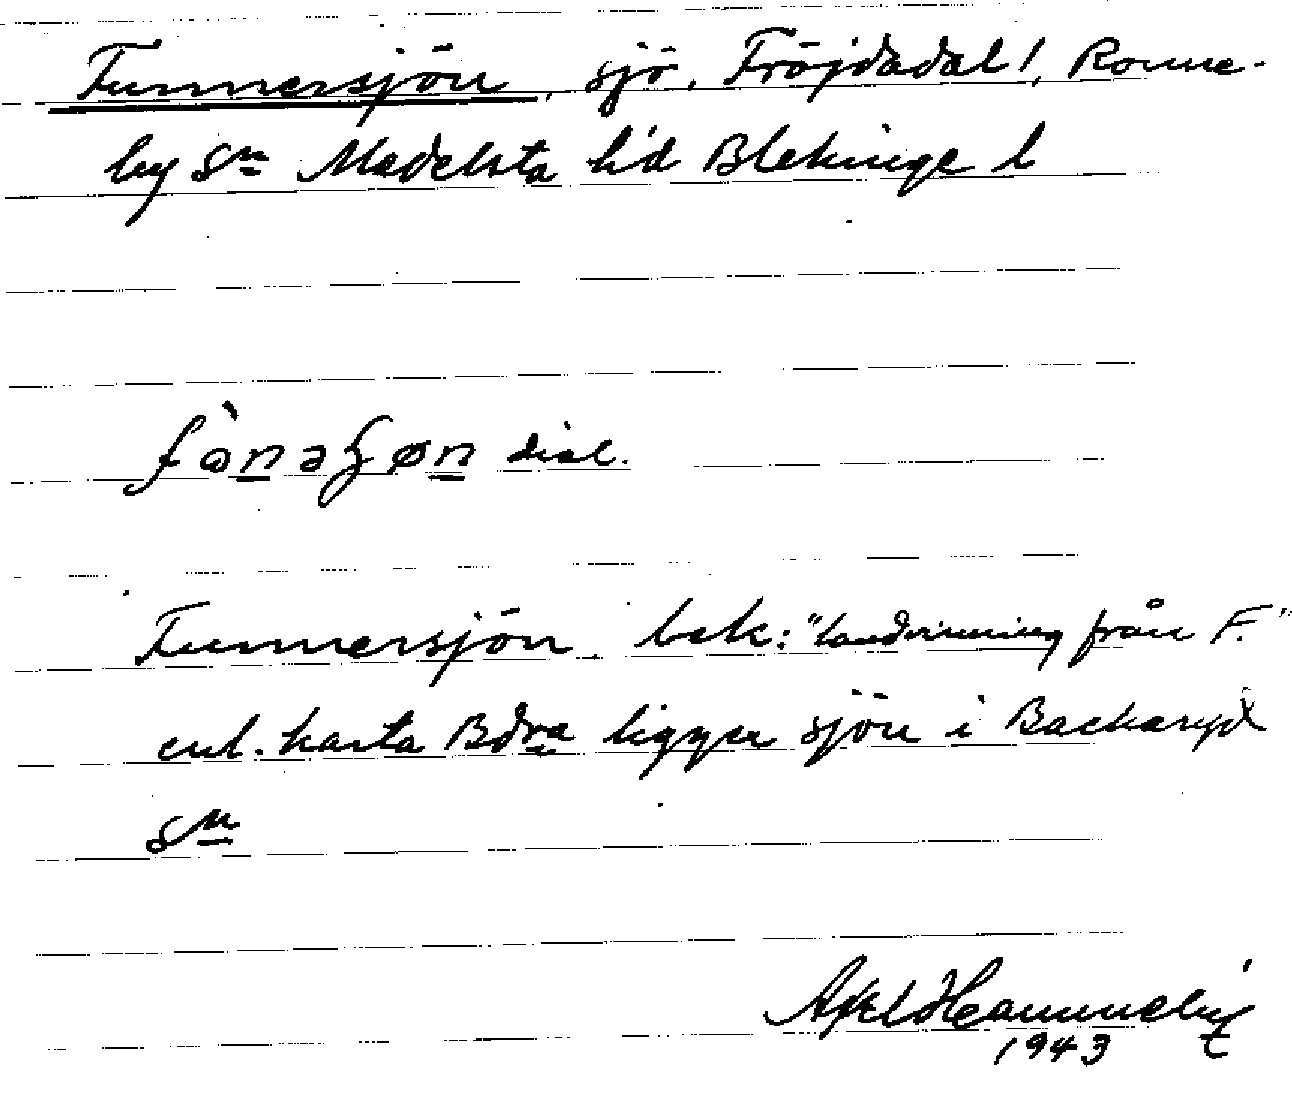 Funnersjön, sjö, Fröjdadal!, Ronne-
by Sn Medelsta hd Blekinge l
fònəʂøn dial.
Funnersjön. bek: "landvinning från F."
enl. karta Bdra ligger sjön i Backaryd
Sn
Axel
1943